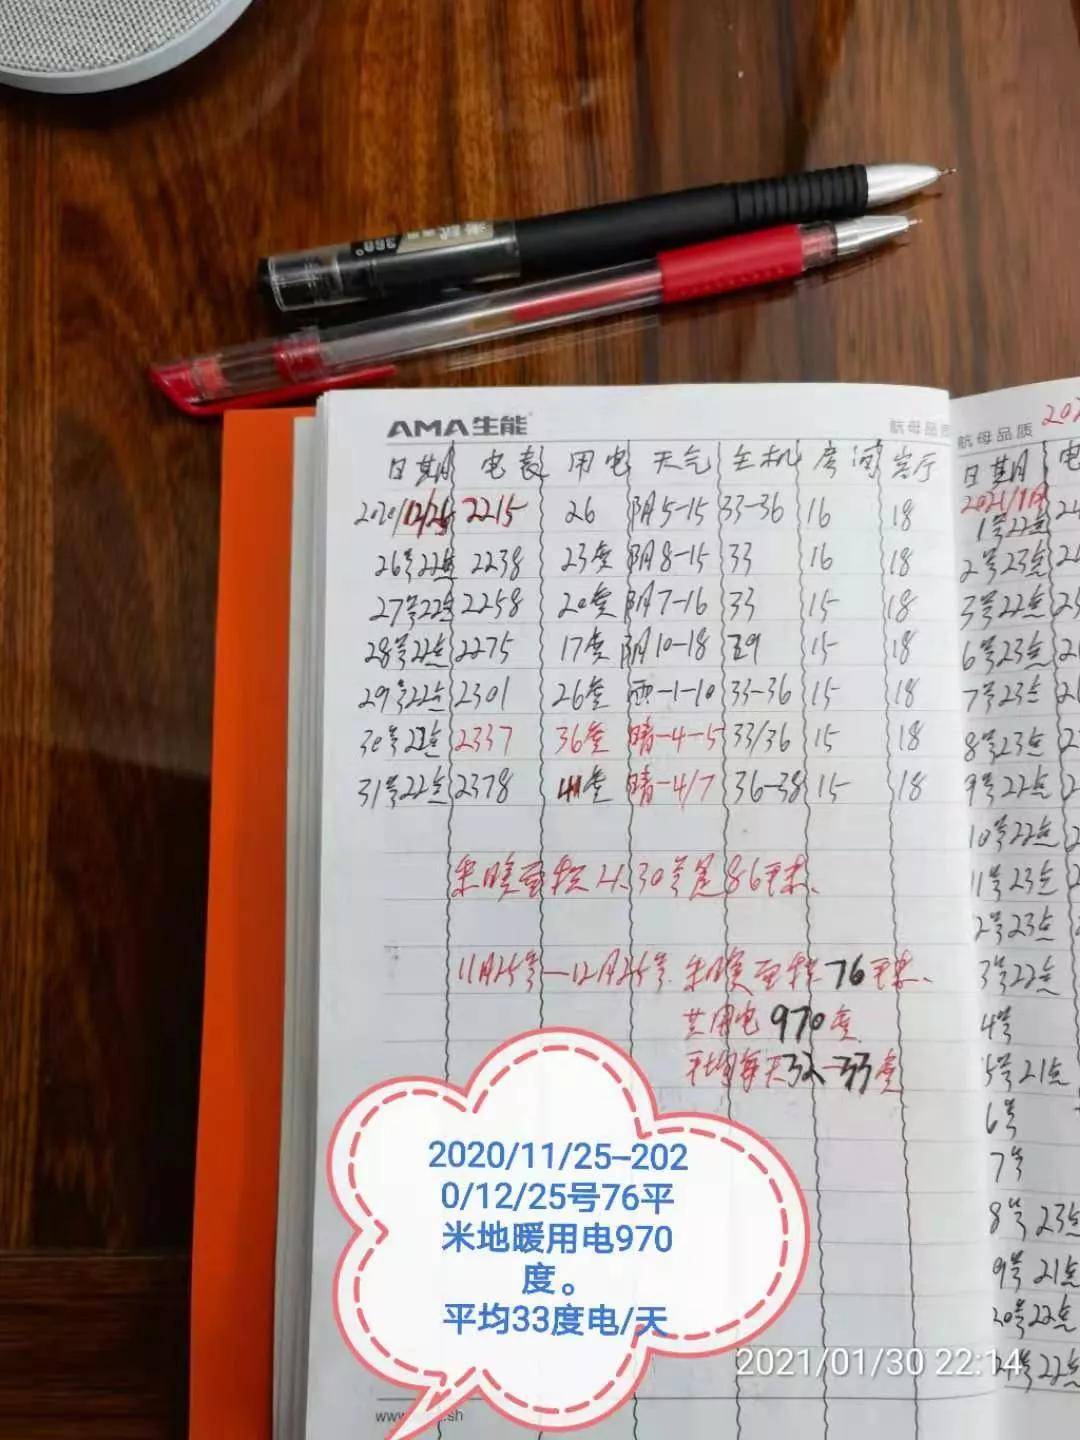 AMA生能
航母品质
日期 电表 用电 天气 主机 房间 客厅
2020/12/25 2215 26 阴5-15 33-36 16 18
26号22点 2238 23度 阴8-15 33 16 18
27号22点 2258 20度 阴7-16 33 15 18
28号22点 2275 17度 阴10-18 15 18
29号22点 2301 26度 雨-1-10 33-36 15 18
30号22点 2337 36度 晴-4-5 33/36 15 18
31号22点 2378 41度 晴-4/7 36-38 15 18
采暖面积 30号是86平米、
11月25号-12月25号.采暖面积76平米、
共用电970度
平均每天32-33度
航母品质
日期
2021/1月
1号22点
2号23点
3号22点
6号23点
7号23点
8号23点
9号22点
10号22点
11号23点
2号23点
3号22点
4号
5号21点
6号
7号
8号23点
9号21点
20号22点
22点
2020/11/25–202
0/12/25号76平
米地暖用电970
度。
平均33度电/天
2021/01/30 22:14